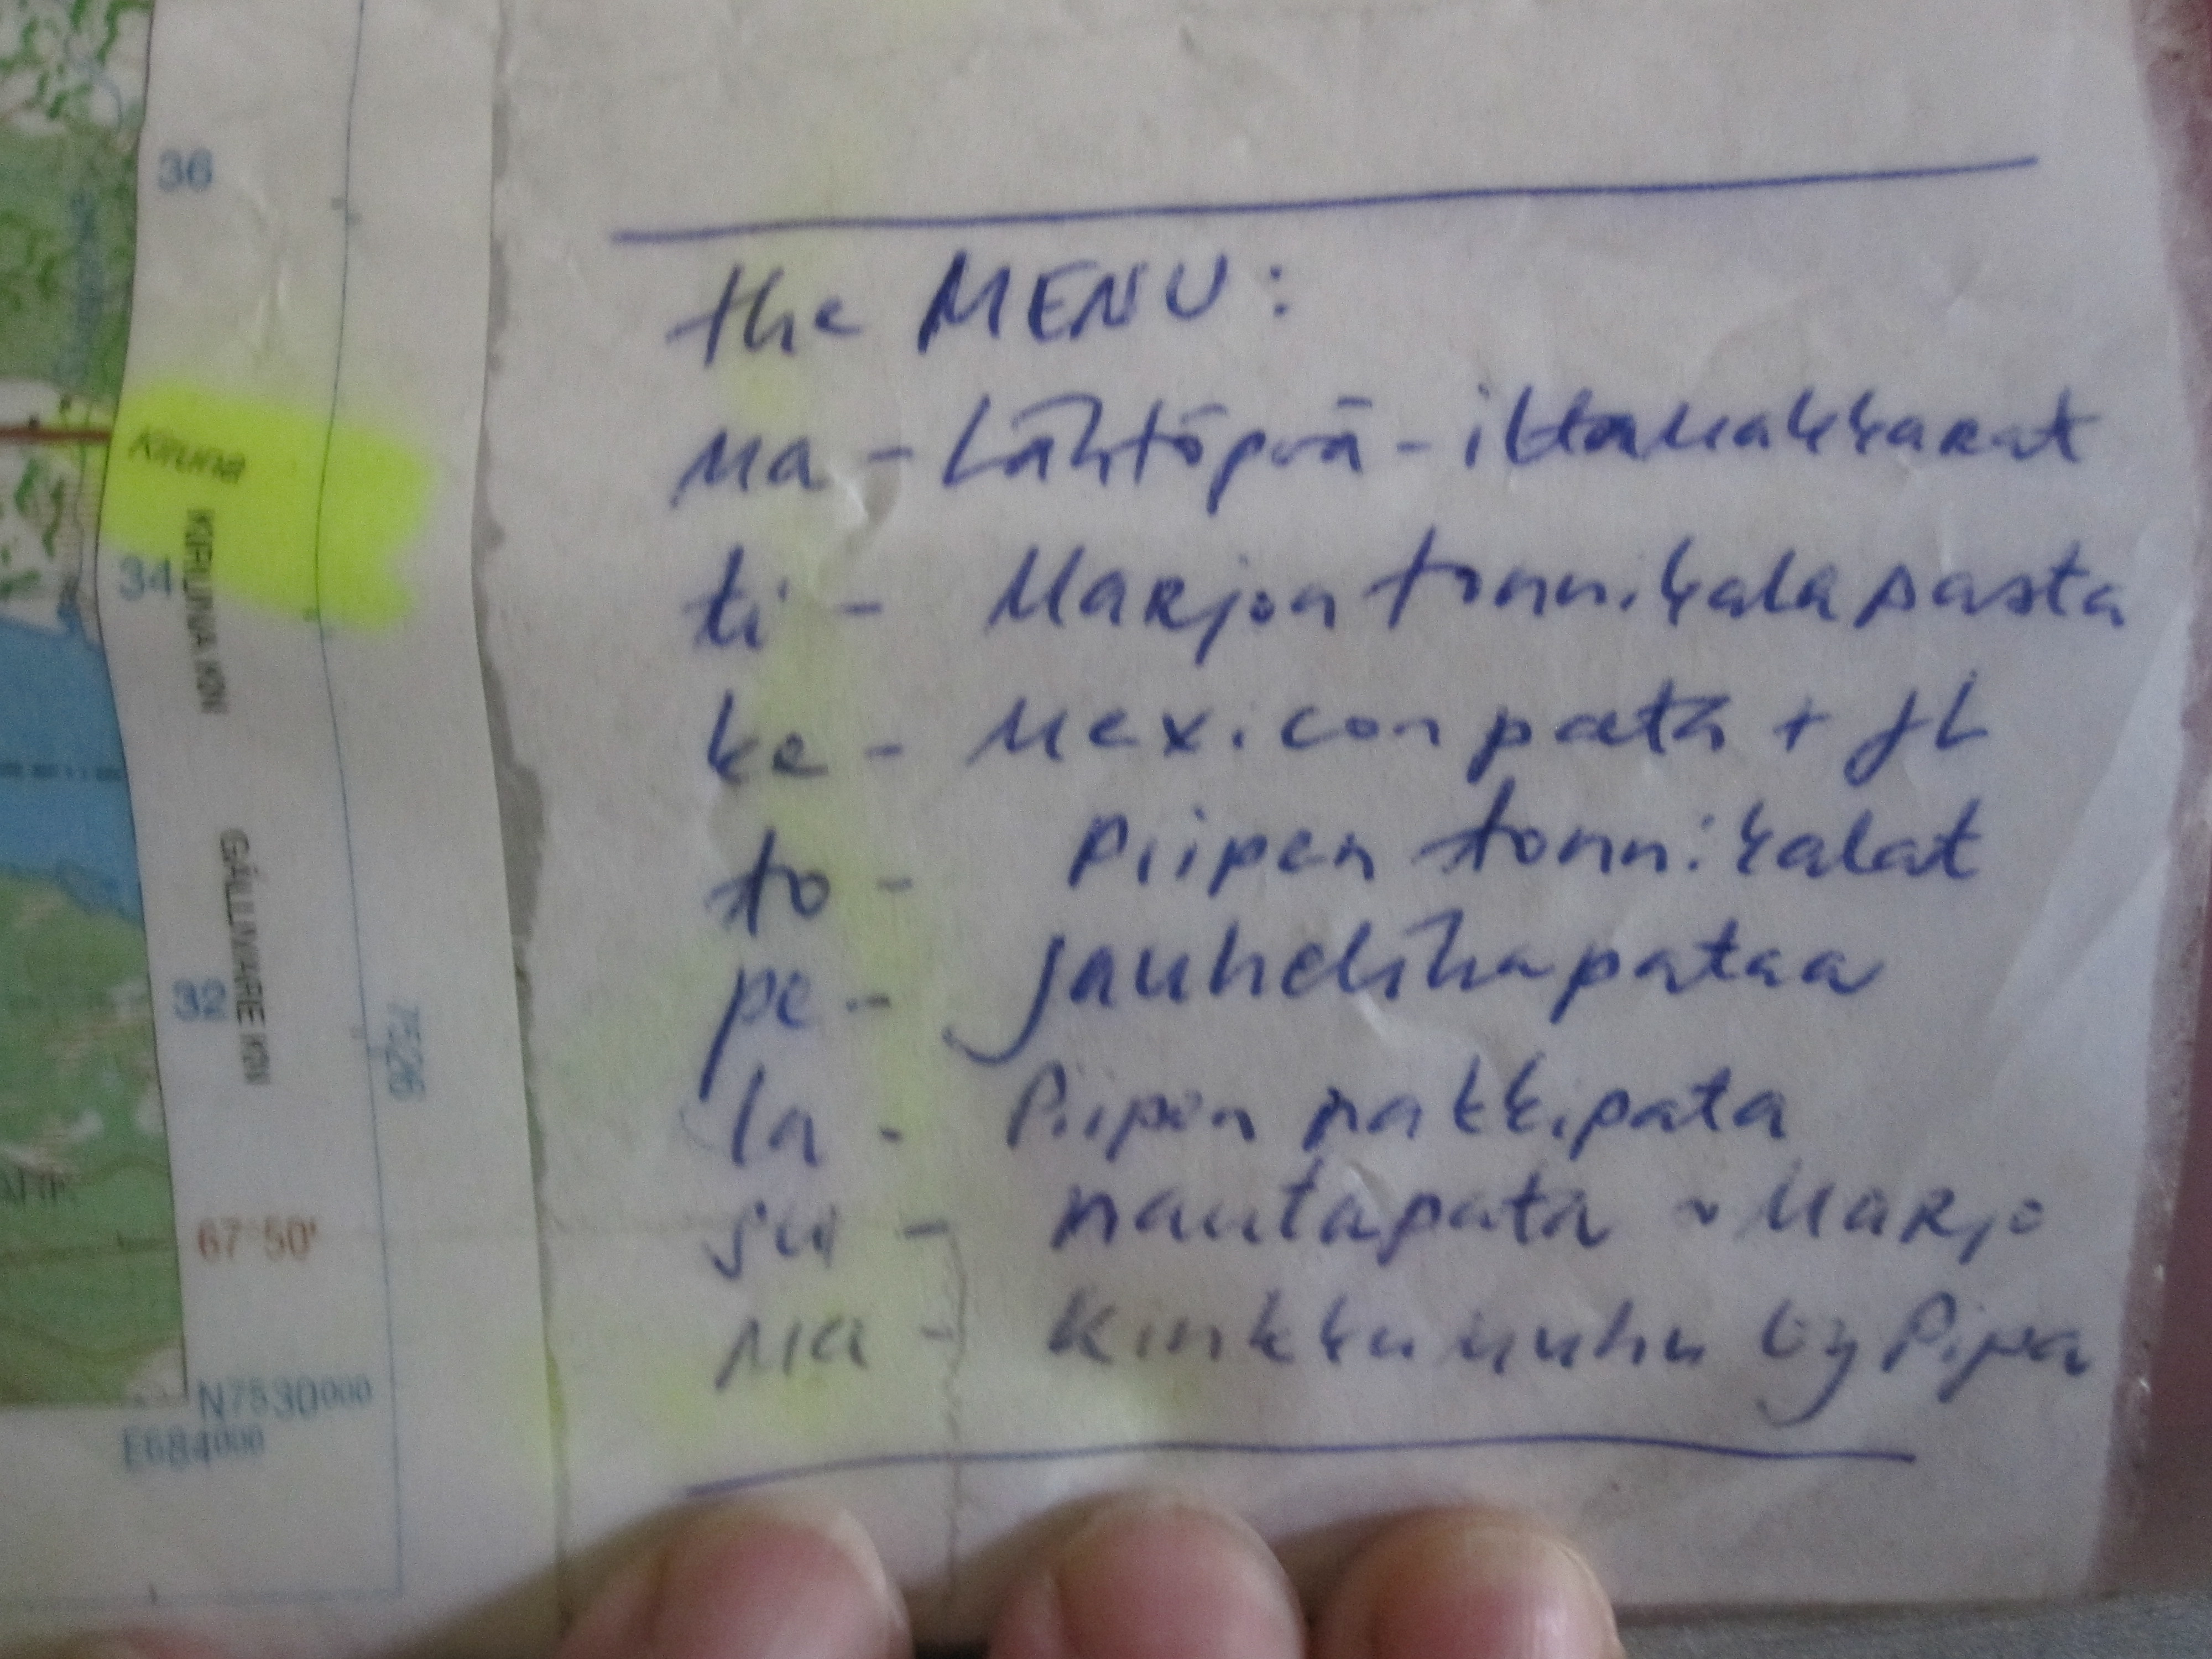 36
the MENU:
ma - Lähtöpvä - iltamakkarat
Kiruna
KIRUNA KN
34
ti - Marjon tonnikalapasta
ke - Mexicon pata + JL
to - Piipen tonnikalat
GÄLLIVARE KN
32
7526
pe - jauhelihapataa
la - Piipen nakkipata
su - nautapata ~ Marjo
67°50'
ma - Kinkkumuhu by Pipa
N7530000
E684000